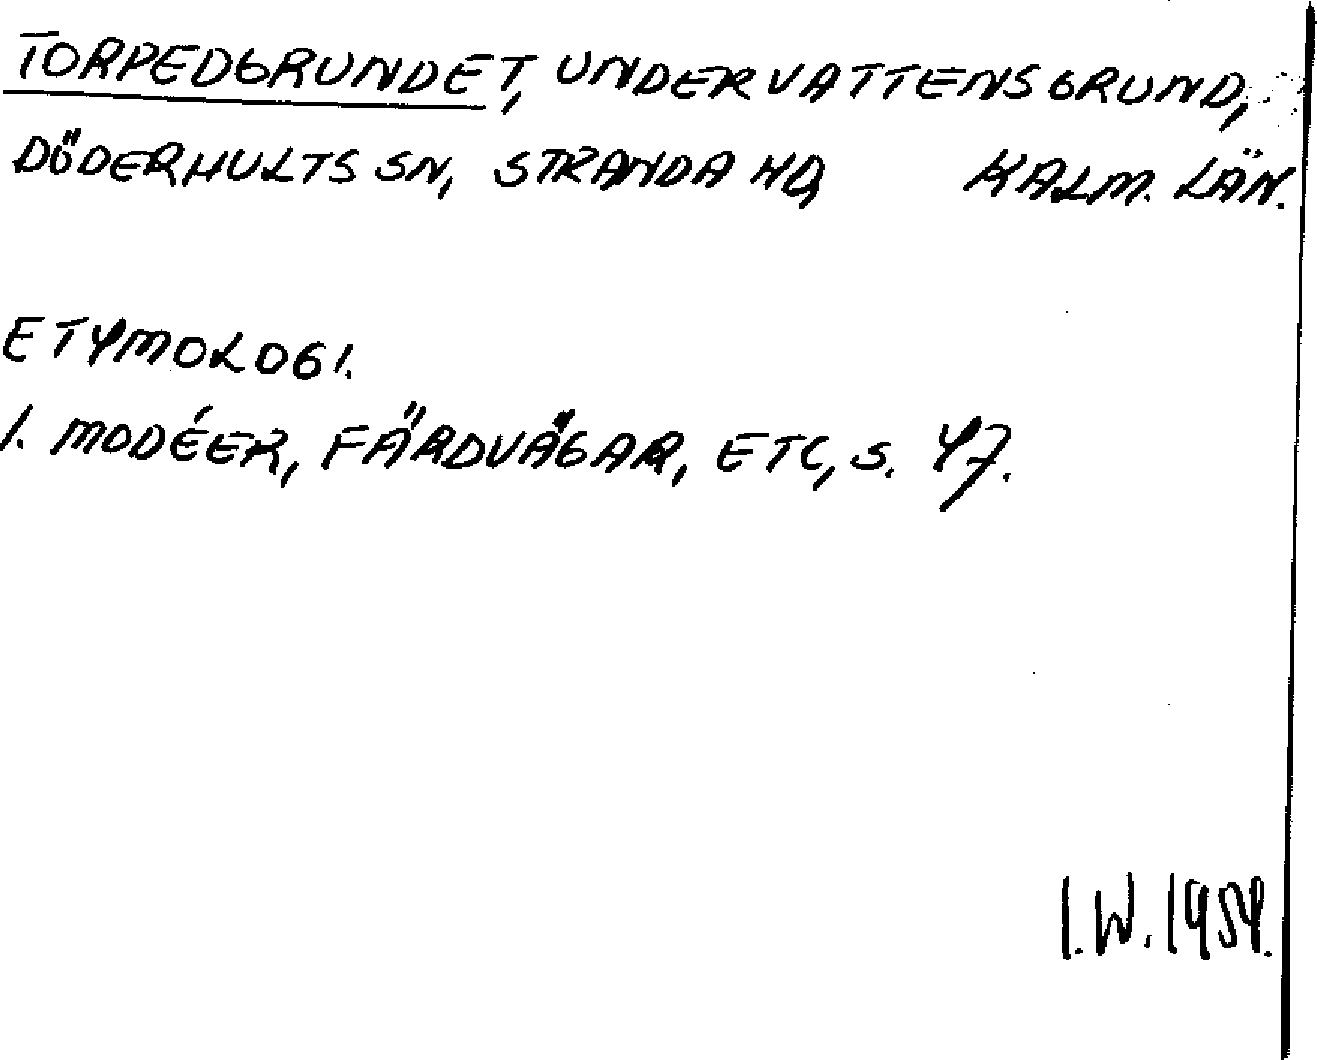 TORPEDGRUNDET, UNDERVATTENSGRUND,
DÖDERHULTS SN, STRANDA HD, KALM. LÄN.
ETYMOLOGI.
I. MODÉER, FÄRDVÄGAR, ETC, S. 47.
I.W. 1954.